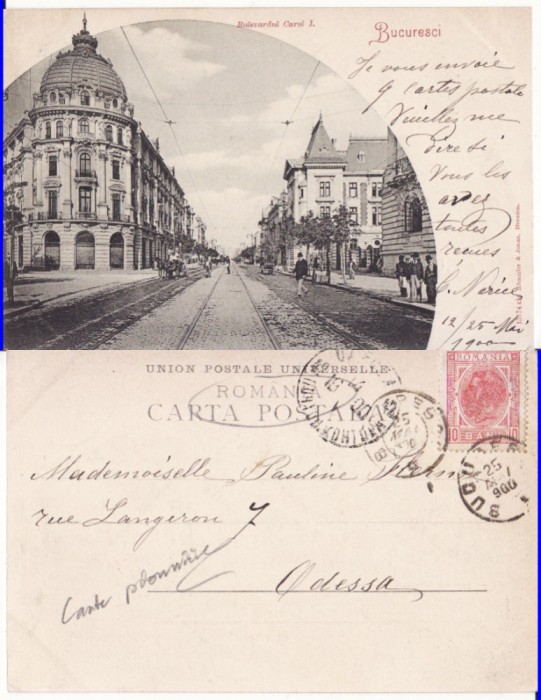 Bulevardul Carol I.
Bucuresci
Je vous envoie
9 cartes postale
Veuillez me
dire si
Vous les
avez
toutes
reçues
12/25 Mai
1900
UNION POSTALE UNIVERSELLE
ROMANIA
CARTA POSTALA
ROMANIA
10 BANI 10
BUCURESCI
25 MAI 900
Mademoiselle Pauline
rue Langeron 7
Odessa
Carte